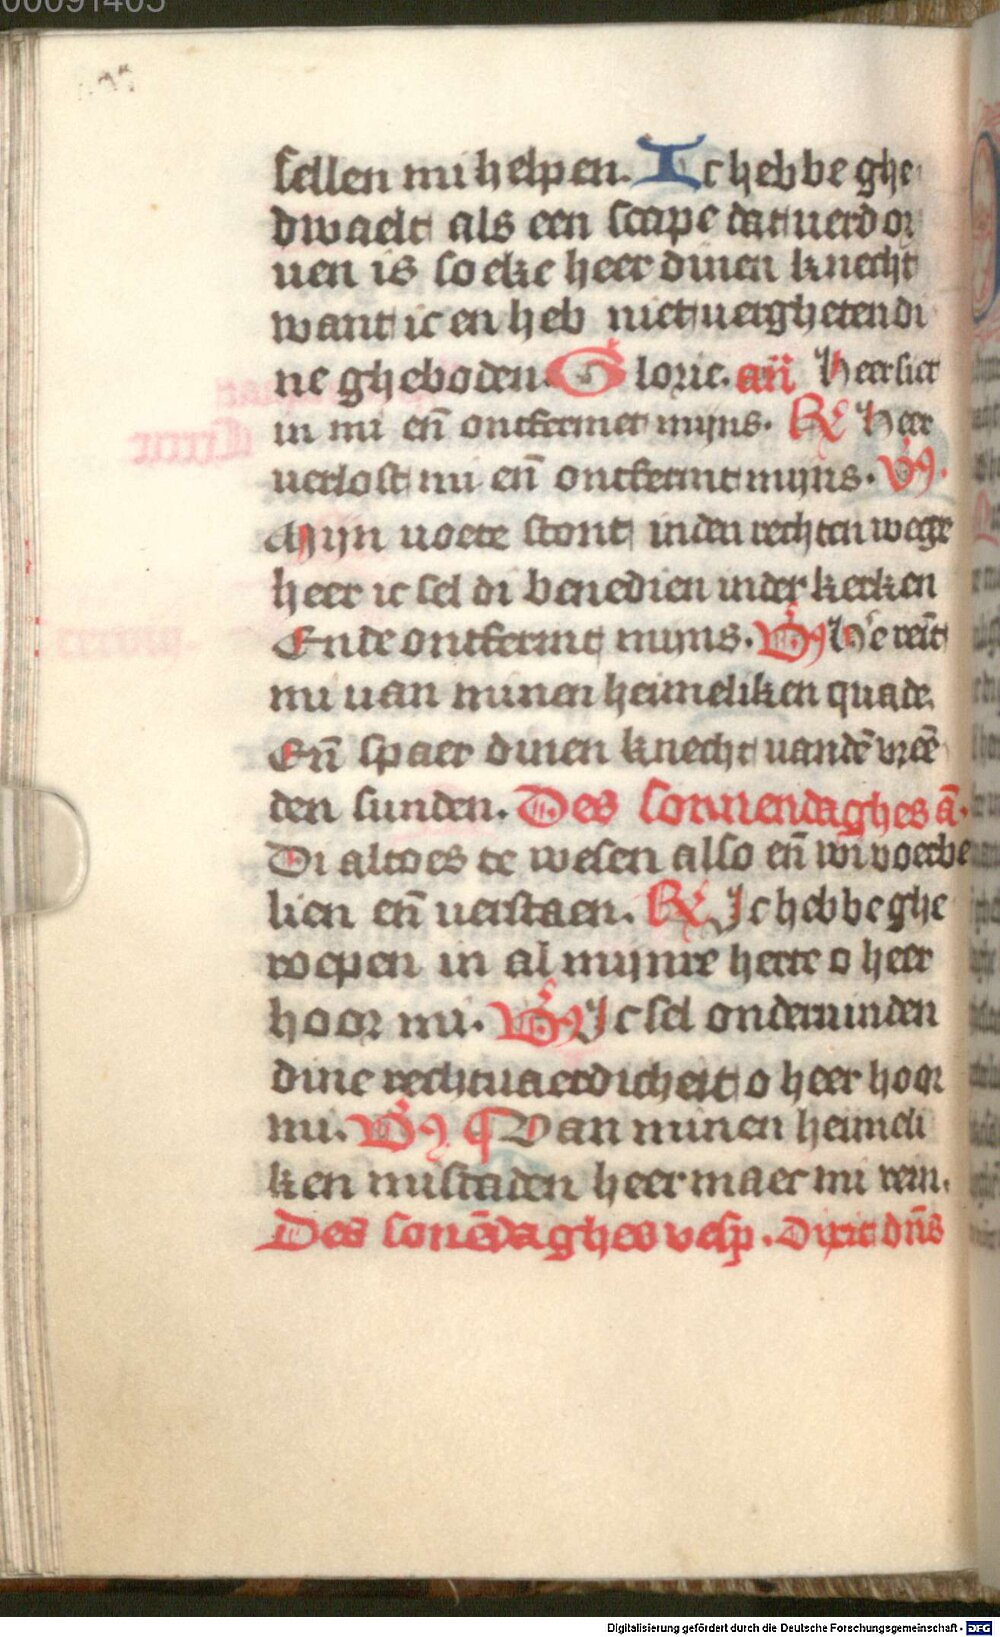 00091405
sellen mi helpen. Ic hebbe ghe
dwaelt als een scape dat verdor
uen is soeke heer dinen knecht
want ic en heb niet uerghetendi
ne gheboden. Glorie. an̄ Heer siet
in mi en̄ ontfermet mijns. R̸ Heer
uerlost mi en̄ ontfermt mijns. V̸s.
Mijn uoete stont inden rechten wege
heer ic sel di benedien inder kerken
Ende ontfermt mijns. V̸s He rein̄t
mi uan minen heimeliken quade.
En̄ spaer dinen knecht uandē vreē
den sunden. Des sonnendaghes ā.
Di altoes te wesen also en̄ wi voerbe
lien en̄ uerstaen. R̸ Ic hebbe ghe
roepen in al mijnre herte o heer
hoor mi. V̸s Ic sel onderuinden
dine rechtuaerdicheit o heer hoor
mi. V̸s ¶ Van minen heimeli
ken misdaden heer maec mi rein.
Des sonēdaghes vesp. Dixit dn̄s
Digitalisierung gefördert durch die Deutsche Forschungsgemeinschaft - DFG